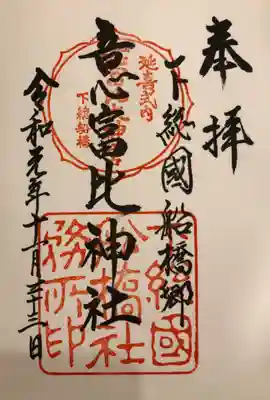 奉拝
下総國船橋郷
意富比神社
令和元年十一月二十三日
延喜式内
下総船橋
下総國
船橋社
務所印